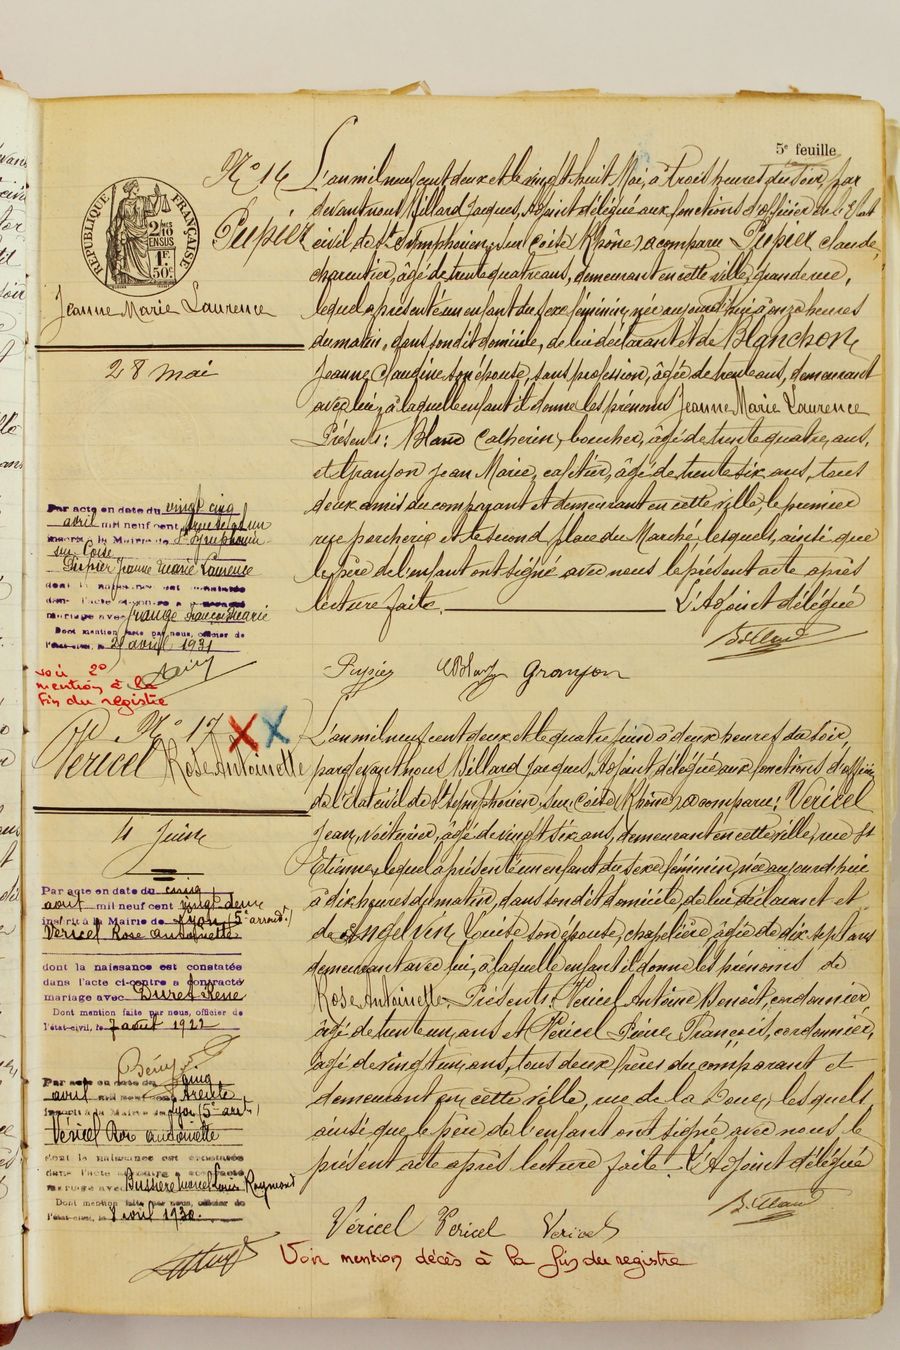 5e feuille
RÉPUBLIQUE FRANÇAISE
2/10 EN SUS
1 F. 50c.
No 16
Pupier
Jeanne Marie Laurence
28 mai
L'an mil neuf cent deux et le vingt huit Mai, à trois heures du soir, par
devant nous Billard Jacques, Adjoint délégué aux fonctions d'officier de l'Etat
civil de St Symphorien sur Coise (Rhône) a comparu Pupier Claude,
charcutier, âgé de trente quatre ans, demeurant en cette ville, grande rue,
lequel a présenté un enfant du sexe féminin, née aujourd'hui à onze heures
du matin, dans son dit domicile, de lui déclarant et de Blanchon
Jeanne Claudine son épouse, sans profession, âgée de trente ans, demeurant
avec lui, à laquelle enfant il donne les prénoms Jeanne Marie Laurence
Présents: Blanc Catherin, boucher, âgé de trente quatre ans,
et Granjon Jean Marie, cafetier, âgé de trente six ans, tous
deux amis du comparant et demeurant en cette ville, le premier
rue porcherie et le second place du Marché, lesquels, ainsi que
le père de l'enfant ont signé avec nous le présent acte après
lecture faite. L'Adjoint délégué
Billard
Pupier Blanc Granjon
Par acte en date du vingt cinq
avril mil neuf cent trente et un
inscrit à la Mairie de St Symphorien
sur Coise
Pupier Jeanne Marie Laurence
dont la naissance est constatée
dans l'acte ci-contre a contracté
mariage avec
Dont mention faite par nous, officier de
l'état-civil, le avril 1931
voir 2º
mention à la
fin du registre
No 17
Vericel Rose Antoinette
4 Juin
L'an mil neuf cent deux et le quatre juin à deux heures du soir,
par devant nous Billard Jacques, Adjoint délégué aux fonctions d'officier
de l'Etat civil de St Symphorien sur Coise (Rhône) a comparu: Vericel
Jean, voiturier, âgé de vingt six ans, demeurant en cette ville, rue St
Etienne, lequel a présenté un enfant du sexe féminin, née aujourd'hui
à dix heures du matin, dans son dit domicile, de lui déclarant et
de Angelvin Louise son épouse, chapelière, âgée de dix sept ans
demeurant avec lui, à laquelle enfant il donne les prénoms de
Rose Antoinette. Présents: Vericel Antoine Benoit, cordonnier,
âgé de trente un ans et Vericel Pierre François, cordonnier,
âgé de vingt un ans, tous deux frères du comparant et
demeurant en cette ville, rue de la lesquels
ainsi que le père de l'enfant ont signé avec nous le
présent acte après lecture faite. L'Adjoint délégué
Billard
Vericel Vericel Vericel
Voir mention décès à la fin du registre
Par acte en date du cinq
aout mil neuf cent vingt deux
inscrit à la Mairie de Lyon (5e arrondt)
Vericel Rose Antoinette
dont la naissance est constatée
dans l'acte ci-contre a contracté
mariage avec Duret René
Dont mention faite par nous, officier de
l'état-civil, le 7 aout 1922
Par acte en date du cinq
avril mil neuf cent trente
inscrit à la Mairie de Lyon (5e art)
Véricel Rose Antoinette
dont la naissance est constatée
dans l'acte ci-contre a contracté
mariage avec Bussière Marcel Louis Raymond
Dont mention faite par nous, officier de
l'état-civil, le 8 avril 1930.